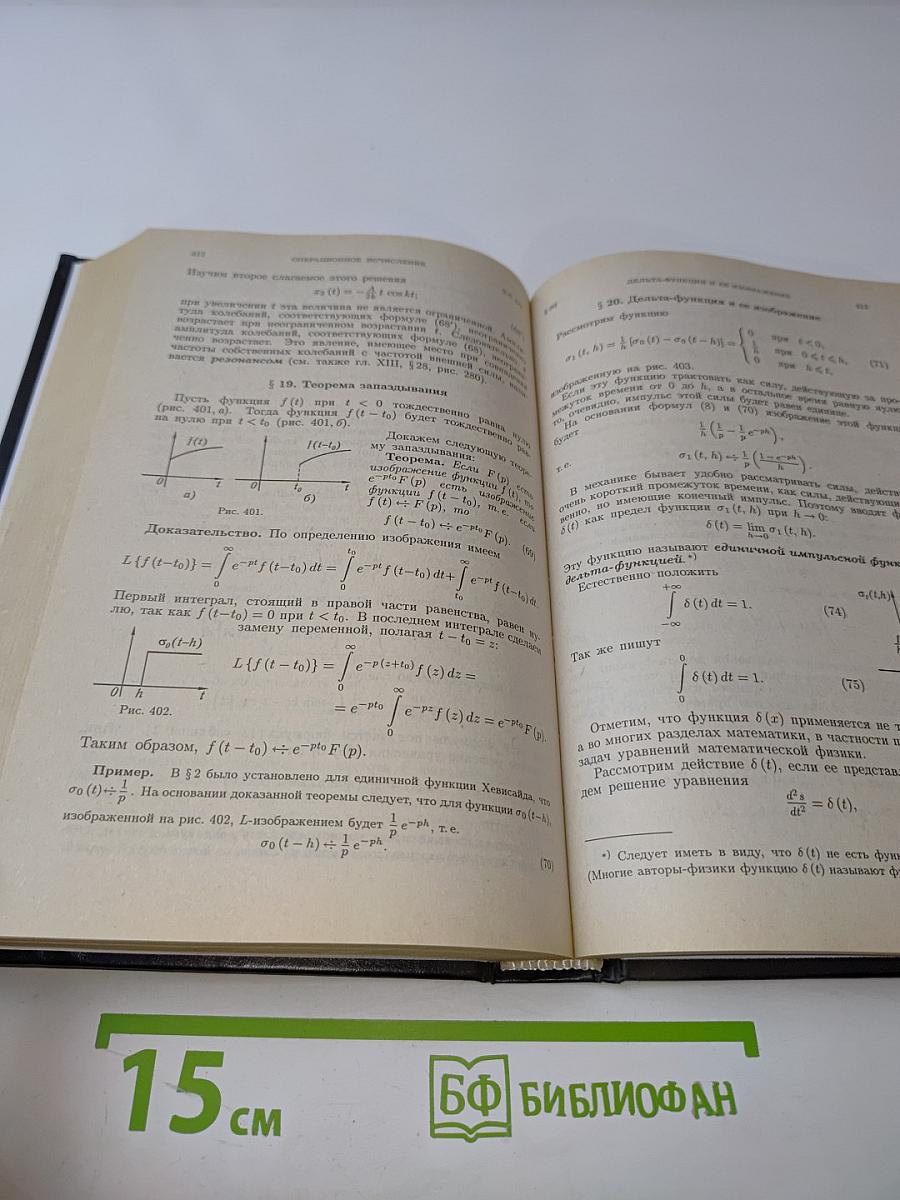 412
ОПЕРАЦИОННОЕ ИСЧИСЛЕНИЕ
Изучим второе слагаемое этого решения
x₂(t) = −A/2k t cos kt;
при увеличении t эта величина не является ограниченной.
туда колебаний, соответствующих формуле (68′), неограниченно
возрастает при неограниченном возрастании t. Следовательно,
амплитуда колебаний, соответствующих формуле (68), неограни-
ченно возрастает. Это явление, имеющее место при совпадении
частоты собственных колебаний с частотой внешней силы, назы-
вается резонансом (см. также гл. XIII, §28, рис. 280).
§ 19. Теорема запаздывания
Пусть функция f(t) при t < 0 тождественно равна нулю
(рис. 401, а). Тогда функция f(t − t₀) будет тождественно рав-
на нулю при t < t₀ (рис. 401, б).
f(t)
0 t
а)
f(t−t₀)
0 t₀ t
б)
Рис. 401.
Докажем следующую теоре-
му запаздывания:
Теорема. Если F(p) есть
изображение функции f(t), то
e^(−pt₀)F(p) есть изображение
функции f(t − t₀), т. е. если
f(t) ∻ F(p), то
f(t − t₀) ∻ e^(−pt₀)F(p). (69)
Доказательство. По определению изображения имеем
L{f(t−t₀)} = ∫₀^∞ e^(−pt) f(t−t₀) dt = ∫₀^(t₀) e^(−pt) f(t−t₀) dt + ∫_(t₀)^∞ e^(−pt) f(t−t₀) dt.
Первый интеграл, стоящий в правой части равенства, равен ну-
лю, так как f(t−t₀) = 0 при t < t₀. В последнем интеграле сделаем
замену переменной, полагая t − t₀ = z:
σ₀(t−h)
0 h t
Рис. 402.
L{f(t − t₀)} = ∫₀^∞ e^(−p(z+t₀)) f(z) dz =
= e^(−pt₀) ∫₀^∞ e^(−pz) f(z) dz = e^(−pt₀) F(p).
Таким образом, f(t − t₀) ∻ e^(−pt₀)F(p).
Пример. В §2 было установлено для единичной функции Хевисайда, что
σ₀(t) ∻ 1/p. На основании доказанной теоремы следует, что для функции σ₀(t−h),
изображенной на рис. 402, L-изображением будет 1/p e^(−ph), т. е.
σ₀(t − h) ∻ 1/p e^(−ph).
(70)
ДЕЛЬТА-ФУНКЦИЯ И ЕЕ ИЗОБРАЖЕНИЕ
413
§ 20. Дельта-функция и ее изображение
Рассмотрим функцию
σ₁(t, h) = 1/h [σ₀(t) − σ₀(t−h)] = { 0 при t < 0, 1/h при 0 ⩽ t ⩽ h, 0 при h ⩽ t, (71)
изображенную на рис. 403.
Если эту функцию трактовать как силу, действующую за про-
межуток времени от 0 до h, а в остальное время равную нулю,
то, очевидно, импульс этой силы будет равен единице.
На основании формул (8) и (70) изображение этой функции
будет
1/h (1/p − 1/p e^(−ph)),
т. е.
σ₁(t, h) ∻ 1/p ((1−e^(−ph))/h).
В механике бывает удобно рассматривать силы, действ
очень короткий промежуток времени, как силы, действующи
венно, но имеющие конечный импульс. Поэтому вводят ф
δ(t) как предел функции σ₁(t, h) при h → 0:
δ(t) = lim_(h→0) σ₁(t, h).
Эту функцию называют единичной импульсной функ
дельта-функцией.*)
Естественно положить
∫_(−∞)^(+∞) δ(t) dt = 1. (74)
σ₁(t,h)
1/h
Так же пишут
∫₀^0 δ(t) dt = 1. (75)
Отметим, что функция δ(x) применяется не т
а во многих разделах математики, в частности п
задач уравнений математической физики.
Рассмотрим действие δ(t), если ее представ
дем решение уравнения
d²s/dt² = δ(t),
*) Следует иметь в виду, что δ(t) не есть функ
(Многие авторы-физики функцию δ(t) называют ф
15 см
БФ БИБЛИОФАН